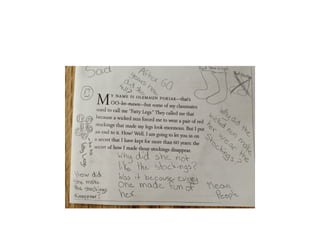 Sad
After 60
years
MY NAME IS OLEMAUN POKIAK—that's
OO-lee-mawn—but some of my classmates
used to call me "Fatty Legs." They called me that
because a wicked nun forced me to wear a pair of red
stockings that made my legs look enormous. But I put
an end to it. How? Well, I am going to let you in on
a secret that I have kept for more than 60 years: the
secret of how I made those stockings disappear.
Why did the
wicked nun make
her wear the
stockings
Why did she not
like the stockings?
Was it because every
One made fun of
her
How did
she make
the stockings
disappear?
Mean
People